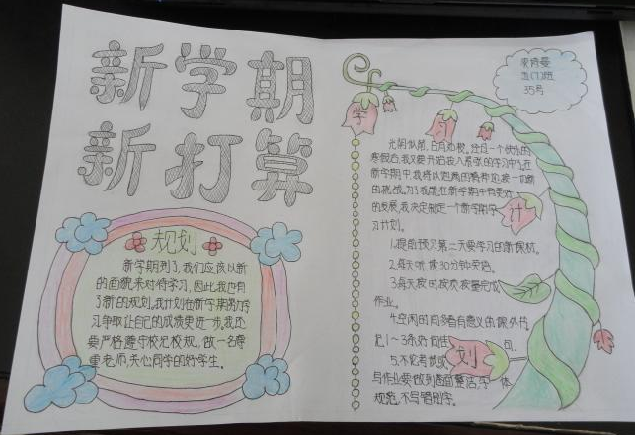 新学期
新打算
规划
新学期到了,我们应该以新
的面貌来对待学习,因此,我也有
了新的规划,我计划在新学期努力学
习,争取让自己的成绩更进一步,我还
要严格遵守校纪校规,做一名尊
重老师,关心同学的好学生。
曼
五(1)班
35号
学
习
计
划
光阴似箭,日月如梭。经过一个快乐的
寒假后,我又要开始投入紧张的学习中,在
新学期中,我将以饱满的精神迎接一切新
的挑战,为了我能在新学期中有更好
的发展,我决定制定一个新学期学
习计划。
1.提前预习第二天要学习的新课材。
2.每天听读30分钟英语。
3.每天按时按质按量完成
作业。
4.空闲时间多看有意义的课外书,
记1~3条好词佳句。
5.不论考试或
写作业要做到书面整洁,字体
规范,不写错别字。